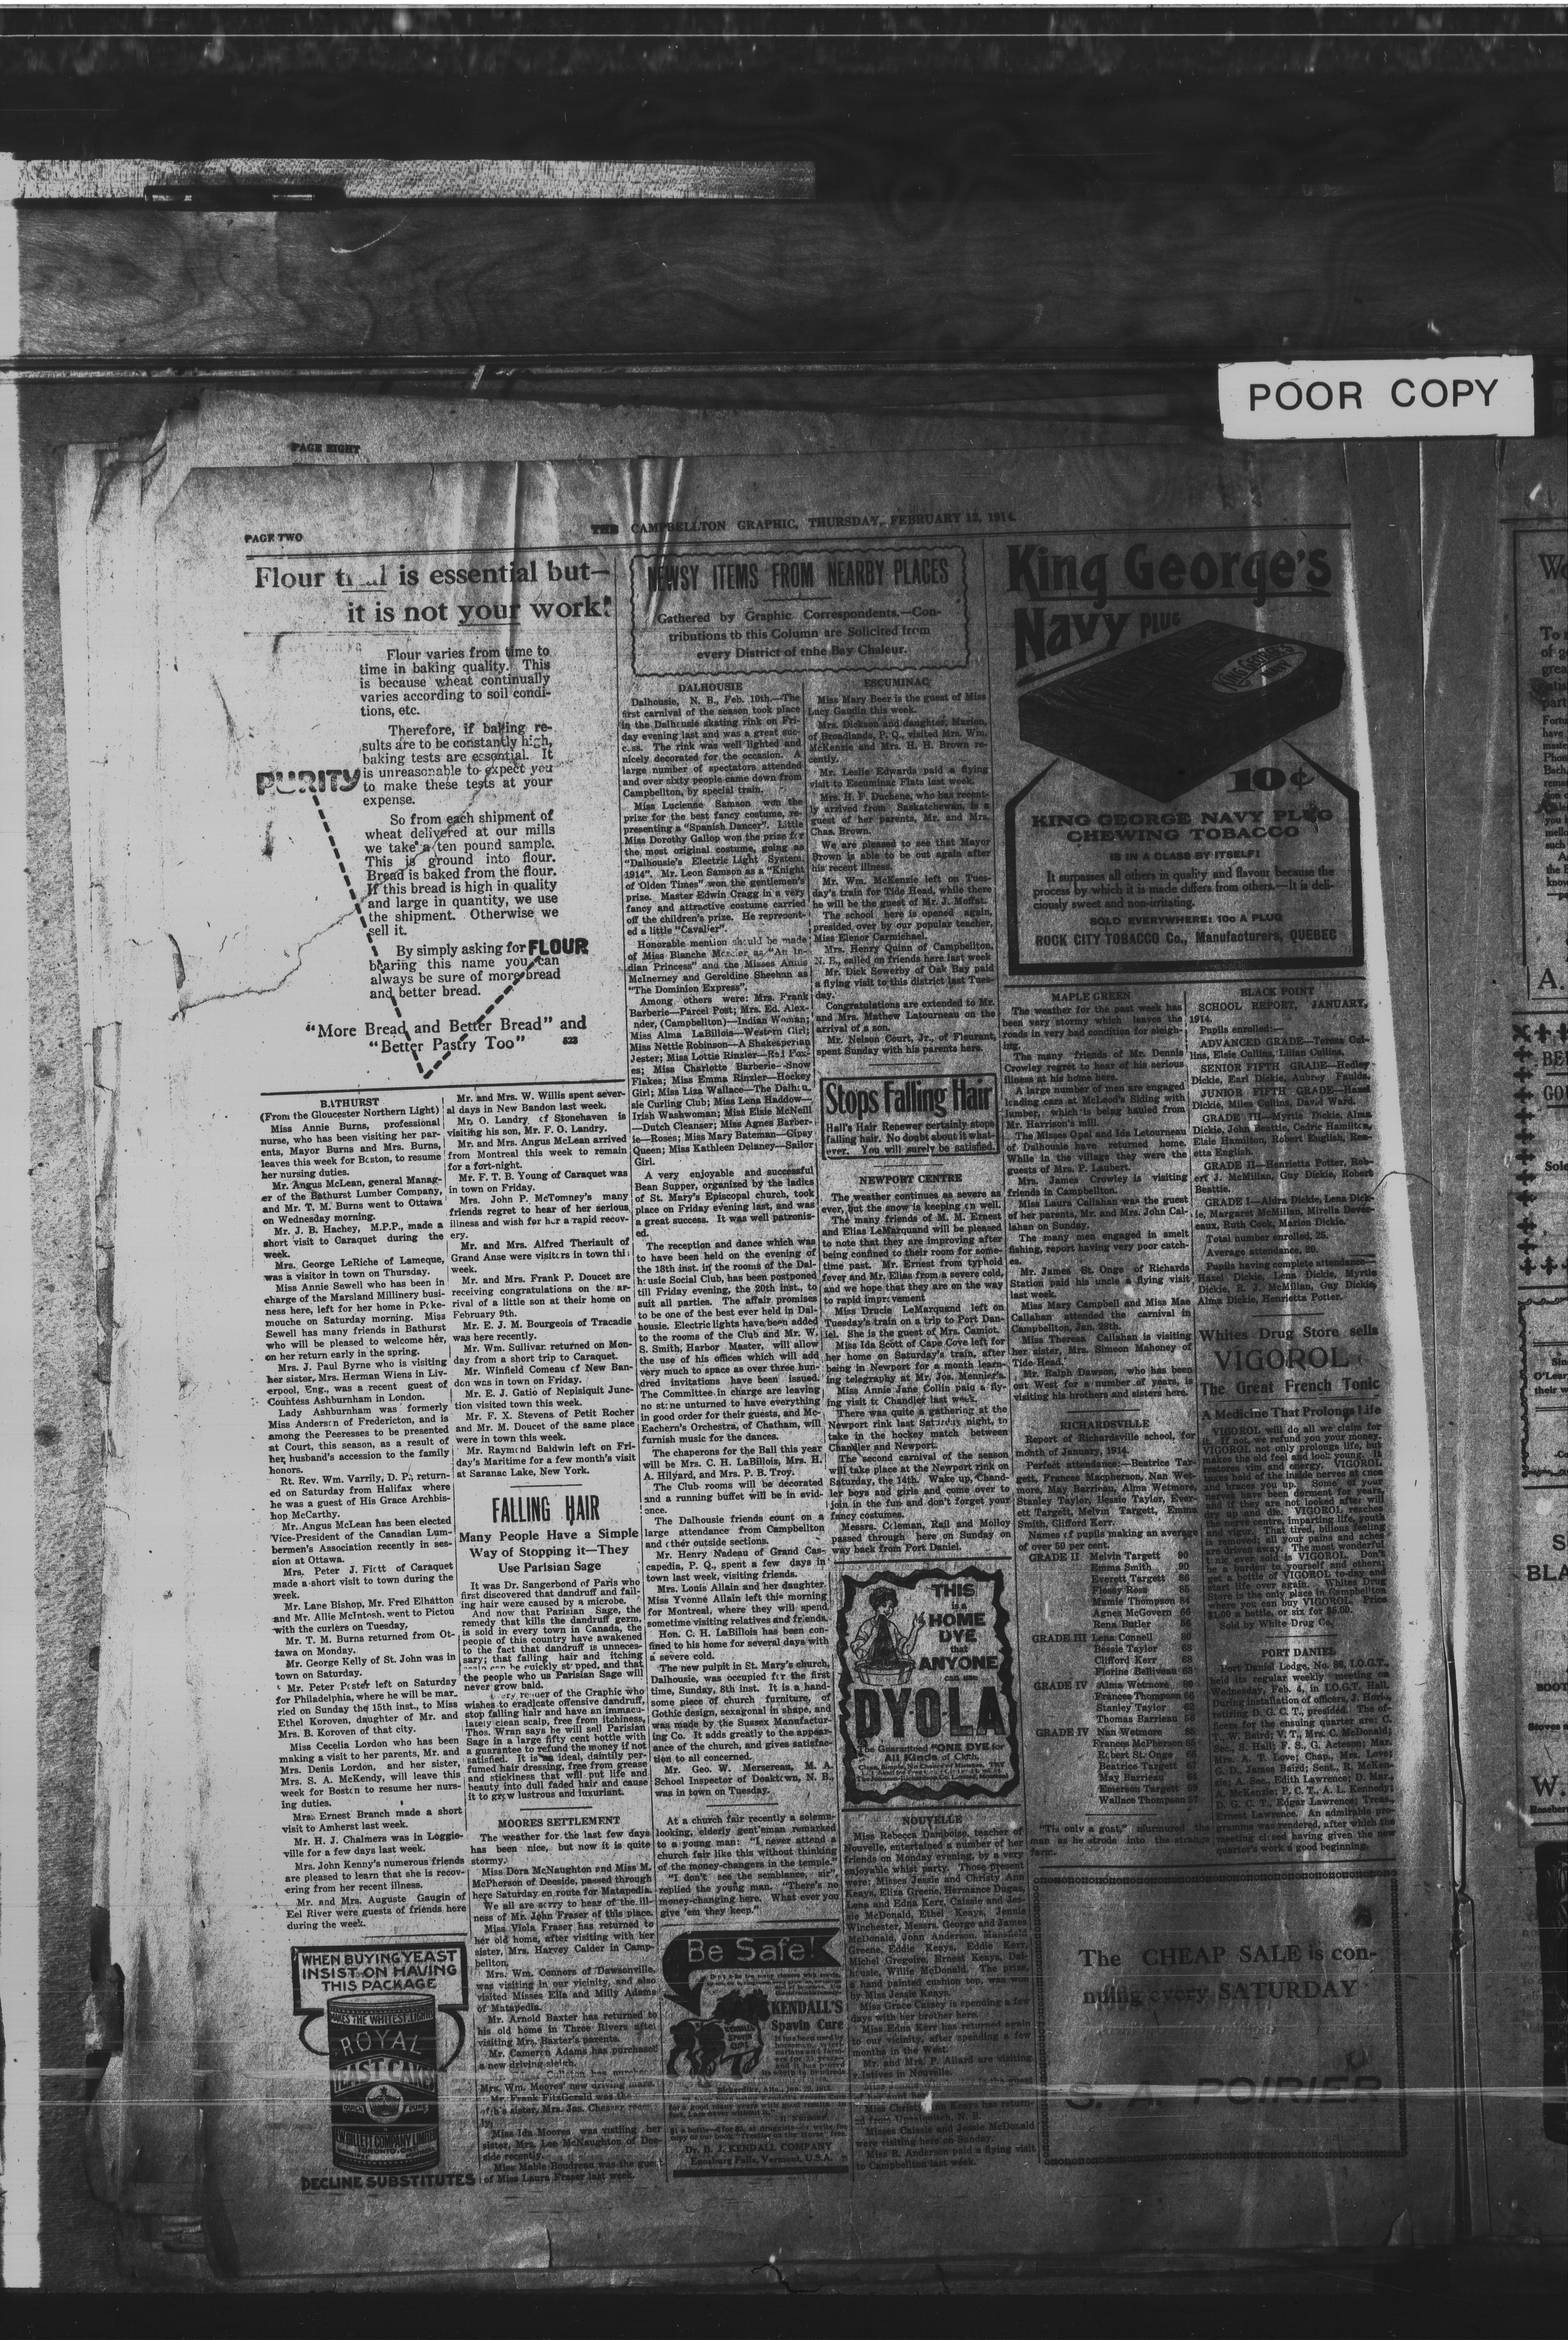 POOR COPY
PAGE EIGHT
PAGE TWO
THE CAMPBELLTON GRAPHIC, THURSDAY, FEBRUARY 12, 1914.
Flour is essential but—
it is not your work!
Flour varies from time to
time in baking quality. This
is because wheat continually
varies according to soil condi-
tions, etc.
Therefore, if baking re-
sults are to be constantly high,
baking tests are essential. It
is unreasonable to expect you
to make these tests at your
expense.
PURITY
So from each shipment of
wheat delivered at our mills
we take a ten pound sample.
This is ground into flour.
Bread is baked from the flour.
If this bread is high in quality
and large in quantity, we use
the shipment. Otherwise we
sell it.
By simply asking for FLOUR
bearing this name you can
always be sure of more bread
and better bread.
"More Bread and Better Bread" and
"Better Pastry Too" 523
BATHURST
(From the Gloucester Northern Light)
Miss Annie Burns, professional
nurse, who has been visiting her par-
ents, Mayor Burns and Mrs. Burns,
leaves this week for Boston, to resume
her nursing duties.
Mr. Angus McLean, general Manag-
er of the Bathurst Lumber Company,
and Mr. T. M. Burns went to Ottawa
on Wednesday morning.
Mr. J. B. Hachey, M.P.P., made a
short visit to Caraquet during the
week.
Mrs. George LeRiche of Lameque,
was a visitor in town on Thursday.
Miss Annie Sewell who has been in
charge of the Marsland Millinery busi-
ness here, left for her home in Poke-
mouche on Saturday morning. Miss
Sewell has many friends in Bathurst
who will be pleased to welcome her,
on her return early in the spring.
Mrs. J. Paul Byrne who is visiting
her sister, Mrs. Herman Wiens in Liv-
erpool, Eng., was a recent guest of
Countess Ashburnham in London.
Lady Ashburnham was formerly
Miss Anderson of Fredericton, and is
among the Peeresses to be presented
at Court, this season, as a result of
her husband's accession to the family
honors.
Rt. Rev. Wm. Varrily, D. P., return-
ed on Saturday from Halifax where
he was a guest of His Grace Archbis-
hop McCarthy.
Mr. Angus McLean has been elected
Vice-President of the Canadian Lum-
bermen's Association recently in ses-
sion at Ottawa.
Mrs. Peter J. Fiott of Caraquet
made a short visit to town during the
week.
Mr. Lane Bishop, Mr. Fred Elhatton
and Mr. Allie McIntosh, went to Pictou
with the curlers on Tuesday.
Mr. T. M. Burns returned from Ot-
tawa on Monday.
Mr. George Kelly of St. John was in
town on Saturday.
Mr. Peter Poster left on Saturday
for Philadelphia, where he will be mar-
ried on Sunday the 15th inst., to Miss
Ethel Koroven, daughter of Mr. and
Mrs. B. Koroven of that city.
Miss Cecelia Lordon who has been
making a visit to her parents, Mr. and
Mrs. Denis Lordon, and her sister,
Mrs. S. A. McKendy, will leave this
week for Boston to resume her nurs-
ing duties.
Mrs. Ernest Branch made a short
visit to Amherst last week.
Mr. H. J. Chalmers was in Loggie-
ville for a few days last week.
Mrs. John Kenny's numerous friends
are pleased to learn that she is recov-
ering from her recent illness.
Mr. and Mrs. Auguste Gaugin of
Eel River were guests of friends here
during the week.
WHEN BUYING YEAST
INSIST ON HAVING
THIS PACKAGE
MAKES THE WHITEST, LIGHT
ROYAL
YEAST CAKES
E.W. GILLETT COMPANY LIMITED
TORONTO
DECLINE SUBSTITUTES
Mr. and Mrs. W. Willis spent sever-
al days in New Bandon last week.
Mr. O. Landry of Stonehaven is
visiting his son, Mr. F. O. Landry.
Mr. and Mrs. Angus McLean arrived
from Montreal this week to remain
for a fort-night.
Mr. F. T. B. Young of Caraquet was
in town on Friday.
Mrs. John P. McTomney's many
friends regret to hear of her serious
illness and wish for her a rapid recov-
ery.
Mr. and Mrs. Alfred Theriault of
Grand Anse were visitors in town this
week.
Mr. and Mrs. Frank P. Doucet are
receiving congratulations on the ar-
rival of a little son at their home on
February 9th.
Mr. E. J. M. Bourgeois of Tracadie
was here recently.
Mr. Wm. Sullivan returned on Mon-
day from a short trip to Caraquet.
Mr. Winfield Comeau of New Ban-
don was in town on Friday.
Mr. E. J. Gatio of Nepisiquit Junc-
tion visited town this week.
Mr. F. X. Stevens of Petit Rocher
and Mr. M. Doucet of the same place
were in town this week.
Mr. Raymond Baldwin left on Fri-
day's Maritime for a few month's visit
at Saranac Lake, New York.
FALLING HAIR
Many People Have a Simple
Way of Stopping it—They
Use Parisian Sage
It was Dr. Sangerbond of Paris who
first discovered that dandruff and fall-
ing hair were caused by a microbe.
And now that Parisian Sage, the
remedy that kills the dandruff germ,
is sold in every town in Canada, the
people of this country have awakened
to the fact that dandruff is unneces-
sary; that falling hair and itching
scalp can be quickly stopped, and that
the people who us Parisian Sage will
never grow bald.
Every reader of the Graphic who
wishes to eradicate offensive dandruff,
stop falling hair and have an immacu-
lately clean scalp, free from itchiness,
Thos. Wran says he will sell Parisian
Sage in a large fifty cent bottle with
a guarantee to refund the money if not
satisfied. It is an ideal, daintily per-
fumed hair dressing, free from grease
and stickiness that will put life and
beauty into dull faded hair and cause
it to grow lustrous and luxuriant.
MOORES SETTLEMENT
The weather for the last few days
has been nice, but now it is quite
stormy.
Miss Dora McNaughton and Miss M.
McPherson of Deeside, passed through
here Saturday en route for Matapedia.
We all are sorry to hear of the ill-
ness of Mr. John Fraser of this place.
Miss Viola Fraser has returned to
her old home, after visiting with her
sister, Mrs. Harvey Calder in Camp-
bellton.
Mrs. Wm. Connors of Dawsonville,
was visiting in our vicinity, and also
visited Misses Ella and Milly Adams
of Matapedia.
Mr. Arnold Baxter has returned to
his old home in Three Rivers after
visiting Mrs. Baxter's parents.
Mr. Cameron Adams has purchased
a new driving sleigh.
Mrs. Wm. Moores' new driving mare.
Mr. Frank FitzGerald was the
of his sister, Mrs. Jas. Chesser recent-
ly.
Miss Ida Moores was visiting her
sister, Mrs. Lee McNaughton of Dee-
side recently.
Miss Mable Boudreau was the guest
of Miss Laura Fraser last week.
NEWSY ITEMS FROM NEARBY PLACES
Gathered by Graphic Correspondents.—Con-
tributions to this Column are Solicited from
every District of tnhe Bay Chaleur.
DALHOUSIE
Dalhousie, N. B., Feb. 10th.—The
first carnival of the season took place
in the Dalhousie skating rink on Fri-
day evening last and was a great suc-
cess. The rink was well lighted and
nicely decorated for the occasion. A
large number of spectators attended
and over sixty people came down from
Campbellton, by special train.
Miss Lucienne Samson won the
prize for the best fancy costume, re-
presenting a "Spanish Dancer". Little
Miss Dorothy Gallop won the prize for
the most original costume, going as
"Dalhousie's Electric Light System,
1914". Mr. Leon Samson as a "Knight
of 'Olden Times" won the gentlemen's
prize. Master Edwin Cragg in a very
fancy and attractive costume carried
off the children's prize. He represent-
ed a little "Cavalier".
Honorable mention should be made
of Miss Blanche Mercier as "An In-
dian Princess" and the Misses Annie
McInerney and Gereldine Sheehan as
"The Dominion Express".
Among others were: Mrs. Frank
Barberie—Parcel Post; Mrs. Ed. Alex-
nder, (Campbellton)—Indian Woman;
Miss Alma LaBillois—Western Girl;
Miss Nettie Robinson—A Shakesperian
Jester; Miss Lottie Rinzler—Red Pox-
es; Miss Charlotte Barberie—Snow
Flakes; Miss Emma Rinzler—Hockey
Girl; Miss Liza Wallace—The Dalhou-
sie Curling Club; Miss Lena Haddow—
Irish Washwoman; Miss Elsie McNeill
—Dutch Cleanser; Miss Agnes Barber-
ie—Roses; Miss Mary Bateman—Gipsy
Queen; Miss Kathleen Delaney—Sailor
Girl.
A very enjoyable and successful
Bean Supper, organized by the ladies
of St. Mary's Episcopal church, took
place on Friday evening last, and was
a great success. It was well patroniz-
ed.
The reception and dance which was
to have been held on the evening of
the 18th inst. in the rooms of the Dal-
housie Social Club, has been postponed
till Friday evening, the 20th inst., to
suit all parties. The affair promises
to be one of the best ever held in Dal-
housie. Electric lights have been added
to the rooms of the Club and Mr. W.
S. Smith, Harbor Master, will allow
the use of his offices which will add
very much to space as over three hun-
dred invitations have been issued.
The Committee in charge are leaving
no stone unturned to have everything
in good order for their guests, and Mc-
Eachern's Orchestra, of Chatham, will
furnish music for the dances.
The chaperons for the Ball this year
will be Mrs. C. H. LaBillois, Mrs. H.
A. Hilyard, and Mrs. P. B. Troy.
The Club rooms will be decorated
and a running buffet will be in evid-
ence.
The Dalhousie friends count on a
large attendance from Campbellton
and other outside sections.
Mr. Henry Nadeau of Grand Cas-
capedia, P. Q., spent a few days in
town last week, visiting friends.
Mrs. Louis Allain and her daughter
Miss Yvonne Allain left this morning
for Montreal, where they will spend
sometime visiting relatives and friends.
Hon. C. H. LaBillois has been con-
fined to his home for several days with
a severe cold.
The new pulpit in St. Mary's church,
Dalhousie, was occupied for the first
time, Sunday, 8th inst. It is a hand-
some piece of church furniture, of
Gothic design, sexagonal in shape, and
was made by the Sussex Manufactur-
ing Co. It adds greatly to the appear-
ance of the church, and gives satisfac-
tion to all concerned.
Mr. Geo. W. Mersereau, M. A.
School Inspector of Doaktown, N. B.,
was in town on Tuesday.
At a church fair recently a solemn-
looking, elderly gentleman remarked
to a young man: "I never attend a
church fair like this without thinking
of the money-changers in the temple."
"I don't see the semblance, sir",
replied the young man. "There's no
money-changing here. What ever you
give 'em they keep."
Be Safe!
KENDALL'S
Spavin Cure
Dr. B. J. KENDALL COMPANY
Enosburg Falls, Vermont, U.S.A.
ESCUMINAC
Miss Mary Beer is the guest of Miss
Lucy Gaudin this week.
Mrs. Dickson and daughter, Marion,
of Broadlands, P. Q., visited Mrs. Wm.
McKenzie and Mrs. H. H. Brown re-
cently.
Mr. Leslie Edwards paid a flying
visit to Escuminac Flats last week.
Mrs. H. F. Duchene, who has recent-
ly arrived from Saskatchewan, is a
guest of her parents, Mr. and Mrs.
Chas. Brown.
We are pleased to see that Mayor
Brown is able to be out again after
his recent illness.
Mr. Wm. McKenzie left on Tues-
day's train for Tide Head, while there
he will be the guest of Mr. J. Moffat.
The school here is opened again,
presided over by our popular teacher,
Miss Elenor Carmichael.
Mrs. Henry Quinn of Campbellton,
N. B., called on friends here last week
Mr. Dick Sowerby of Oak Bay paid
a flying visit to this district last Tues-
day.
Congratulations are extended to Mr.
and Mrs. Mathew Latourneau on the
arrival of a son.
Mr. Nelson Court, Jr., of Fleurant,
spent Sunday with his parents here.
Stops Falling Hair
Hall's Hair Renewer certainly stops
falling hair. No doubt about it what-
ever. You will surely be satisfied.
NEWPORT CENTRE
The weather continues as severe as
ever, but the snow is keeping on well.
The many friends of M. M. Ernest
and Elias LeMarquand will be pleased
to note that they are improving after
being confined to their room for some-
time past. Mr. Ernest from typhoid
fever and Mr. Elias from a severe cold,
and we hope that they are on the way
to rapid improvement
Miss Drucie LeMarquand left on
Tuesday's train on a trip to Port Dan-
iel. She is the guest of Mrs. Camiot.
Miss Ida Scott of Cape Cove left for
her home on Saturday's train, after
being in Newport for a month learn-
ing telegraphy at Mr. Jos. Mennier's.
Miss Annie Jane Collin paid a fly-
ing visit to Chandler last week.
There was quite a gathering at the
Newport rink last Saturday night, to
take in the hockey match between
Chandler and Newport.
The second carnival of the season
will take place at the Newport rink on
Saturday, the 14th. Wake up, Chand-
ler boys and girls and come over to
join in the fun and don't forget your
fancy costumes.
Messrs. Coleman, Rail and Molloy
passed through here on Sunday on
way back from Port Daniel.
THIS
is a
HOME
DYE
that
ANYONE
can use
DYOLA
The Guaranteed "ONE DYE for
All Kinds of Cloth.
NOUVELLE
Miss Rebecca Damboise, teacher of
Nouvelle, entertained a number of her
friends on Monday evening, by a very
enjoyable whist party. Those present
were; Misses Jessie and Christy Ann
Keays, Eliza Greene, Hermance Dugas,
Lena and Edna Kerr, Caissie and Jes-
sie McDonald, Ethel Keays, Jennie
Winchester, Messrs. George and James
McDonald, John Anderson, Mansfield
Greene, Eddie Keays, Eddie Kerr,
Michel Gregoire, Ernest Keays, Dal-
housie, Willie McDonald. The prize,
a hand painted cushion top, was won
by Miss Jessie Keays.
Miss Grace Caisey is spending a few
days with her brother here.
Miss Edna Kerr has returned again
to our vicinity, after spending a few
months in the West.
Mr. and Mrs. P. Allard are visiting
relatives in Nouvelle.
Miss Christy Ann Keays has return-
ed from Upsalquitch, N. B.
Misses Caissie and Jessie McDonald
were visiting here on Sunday.
Miss B. Anderson paid a flying visit
to Campbellton last week.
King George's
Navy PLUG
10¢
KING GEORGE NAVY PLUG
CHEWING TOBACCO
IS IN A CLASS BY ITSELF!
It surpasses all others in quality and flavour because the
process by which it is made differs from others.—It is deli-
ciously sweet and non-irritating.
SOLD EVERYWHERE: 10c A PLUG
ROCK CITY TOBACCO Co., Manufacturers, QUEBEC
MAPLE GREEN
The weather for the past week has
been very stormy which leaves the
roads in very bad condition for sleigh-
ing.
The many friends of Mr. Dennis
Crowley regret to hear of his serious
illness at his home here.
A large number of men are engaged
loading cars at McLeod's Siding with
lumber, which is being hauled from
Mr. Harrison's mill.
The Misses Opal and Ida Letourneau
of Dalhousie have returned home.
While in the village they were the
guests of Mrs. P. Laubert.
Mrs. James Crowley is visiting
friends in Campbellton.
Miss Laura Callahan was the guest
of her parents, Mr. and Mrs. John Cal-
lahan on Sunday.
The many men engaged in smelt
fishing, report having very poor catch-
es.
Mr. James St. Onge of Richards
Station paid his uncle a flying visit
last week.
Miss Mary Campbell and Miss Mae
Callahan attended the carnival in
Campbellton, Jan. 28th.
Miss Theresa Callahan is visiting
her sister, Mrs. Simeon Mahoney of
Tide Head.
Mr. Ralph Dawson, who has been
out West for a number of years, is
visiting his brothers and sisters here.
RICHARDSVILLE
Report of Richardsville school, for
month of January, 1914.
Perfect attendance:—Beatrice Tar-
gett, Frances Macpherson, Nan Wet-
more, May Barrieau, Alma Wetmore,
Stanley Taylor, Bessie Taylor, Ever-
ett Targett, Melvin Targett, Emma
Smith, Clifford Kerr.
Names of pupils making an average
of over 50 per cent.
GRADE II Melvin Targett 90
Emma Smith 90
Everett Targett 86
Flossy Ross 85
Mamie Thompson 84
Agnes McGovern 66
Rena Butler 56
GRADE III Lena Connell 89
Bessie Taylor 69
Clifford Kerr 68
Florine Belliveau 68
GRADE IV Alma Wetmore 69
Frances Thompson 66
Stanley Taylor 62
Thomas Barrieau 56
GRADE IV Nan Wetmore
Frances McPherson 85
Robert St. Onge
Beatrice Targett 67
May Barrieau
Emerson Targett
Wallace Thompson 57
"'Tis only a goat," murmured the
man as he strode into the strange
farm.
BLACK POINT
SCHOOL REPORT, JANUARY,
1914.
Pupils enrolled:—
ADVANCED GRADE—Teresa Col-
lins, Elsie Collins, Lilian Collins.
SENIOR FIFTH GRADE—Hedley
Dickie, Earl Dickie, Aubrey Faulds.
JUNIOR FIFTH GRADE—Hazel
Dickie, Miles Collins, David Ward.
GRADE III—Myrtle Dickie, Alma
Dickie, John Beattie, Cedric Hamilton,
Elsie Hamilton, Robert English, Ros-
etta English.
GRADE II—Henrietta Potter, Rob-
ert J. McMillan, Guy Dickie, Robert
Beattie.
GRADE I—Aldra Dickie, Lena Dick-
ie, Margaret McMillan, Mirella Deves-
eaux, Ruth Cook, Marion Dickie.
Total number enrolled, 25.
Average attendance, 20.
Pupils having complete attendance—
Hazel Dickie, Lena Dickie, Myrtle
Dickie, R. J. McMillan, Guy Dickie,
Alma Dickie, Henrietta Potter.
Whites Drug Store sells
VIGOROL
The Great French Tonic
A Medicine That Prolongs Life
VIGOROL will do all we claim for
it. If not, we refund you your money.
VIGOROL not only prolongs life, but
makes the old feel and look young. It
restores vim and energy. VIGOROL
takes hold of the inside nerves at once
and braces you up. Some of your
nerves have been dormant for years,
and if they are not looked after will
dry up and die. VIGOROL reaches
the nerve centre, imparting life, youth
and vigor. That tired, bilious feeling
is removed; all your pains and aches
are driven away. The most wonderful
tonic ever sold is VIGOROL. Don't
be a burden to yourself and others;
get a bottle of VIGOROL to-day and
start life over again. Whites Drug
Store is the only place in Campbellton
where you can buy VIGOROL. Price
$1.00 a bottle, or six for $5.00.
Sold by White Drug Co.
PORT DANIEL
Port Daniel Lodge, No. 86, I.O.G.T.,
held its regular weekly meeting on
Wednesday, Feb. 4, in I.O.G.T. Hall.
During installation of officers, J. Horie,
retiring D. G. C. T., presided. The of-
ficers for the ensuing quarter are: C.
T., W. Baird; V. T., Mrs. C. McDonald;
Sec., S. Hall; F. S., G. Acteson; Mar.,
Mrs. A. T. Love; Chap., Mrs. Love;
G. D., James Baird; Sent., R. McKen-
zie; A. Sec., Edith Lawrence; D. Mar.,
A. McKenzie; P. C. T., A. L. Kennedy;
D. G. C. T., Edgar Lawrence; Treas.,
Ernest Lawrence. An admirable pro-
gramme was rendered, after which the
meeting closed having given the new
quarter's work a good beginning.
The CHEAP SALE is con-
nuing every SATURDAY
S. A. POIRIER